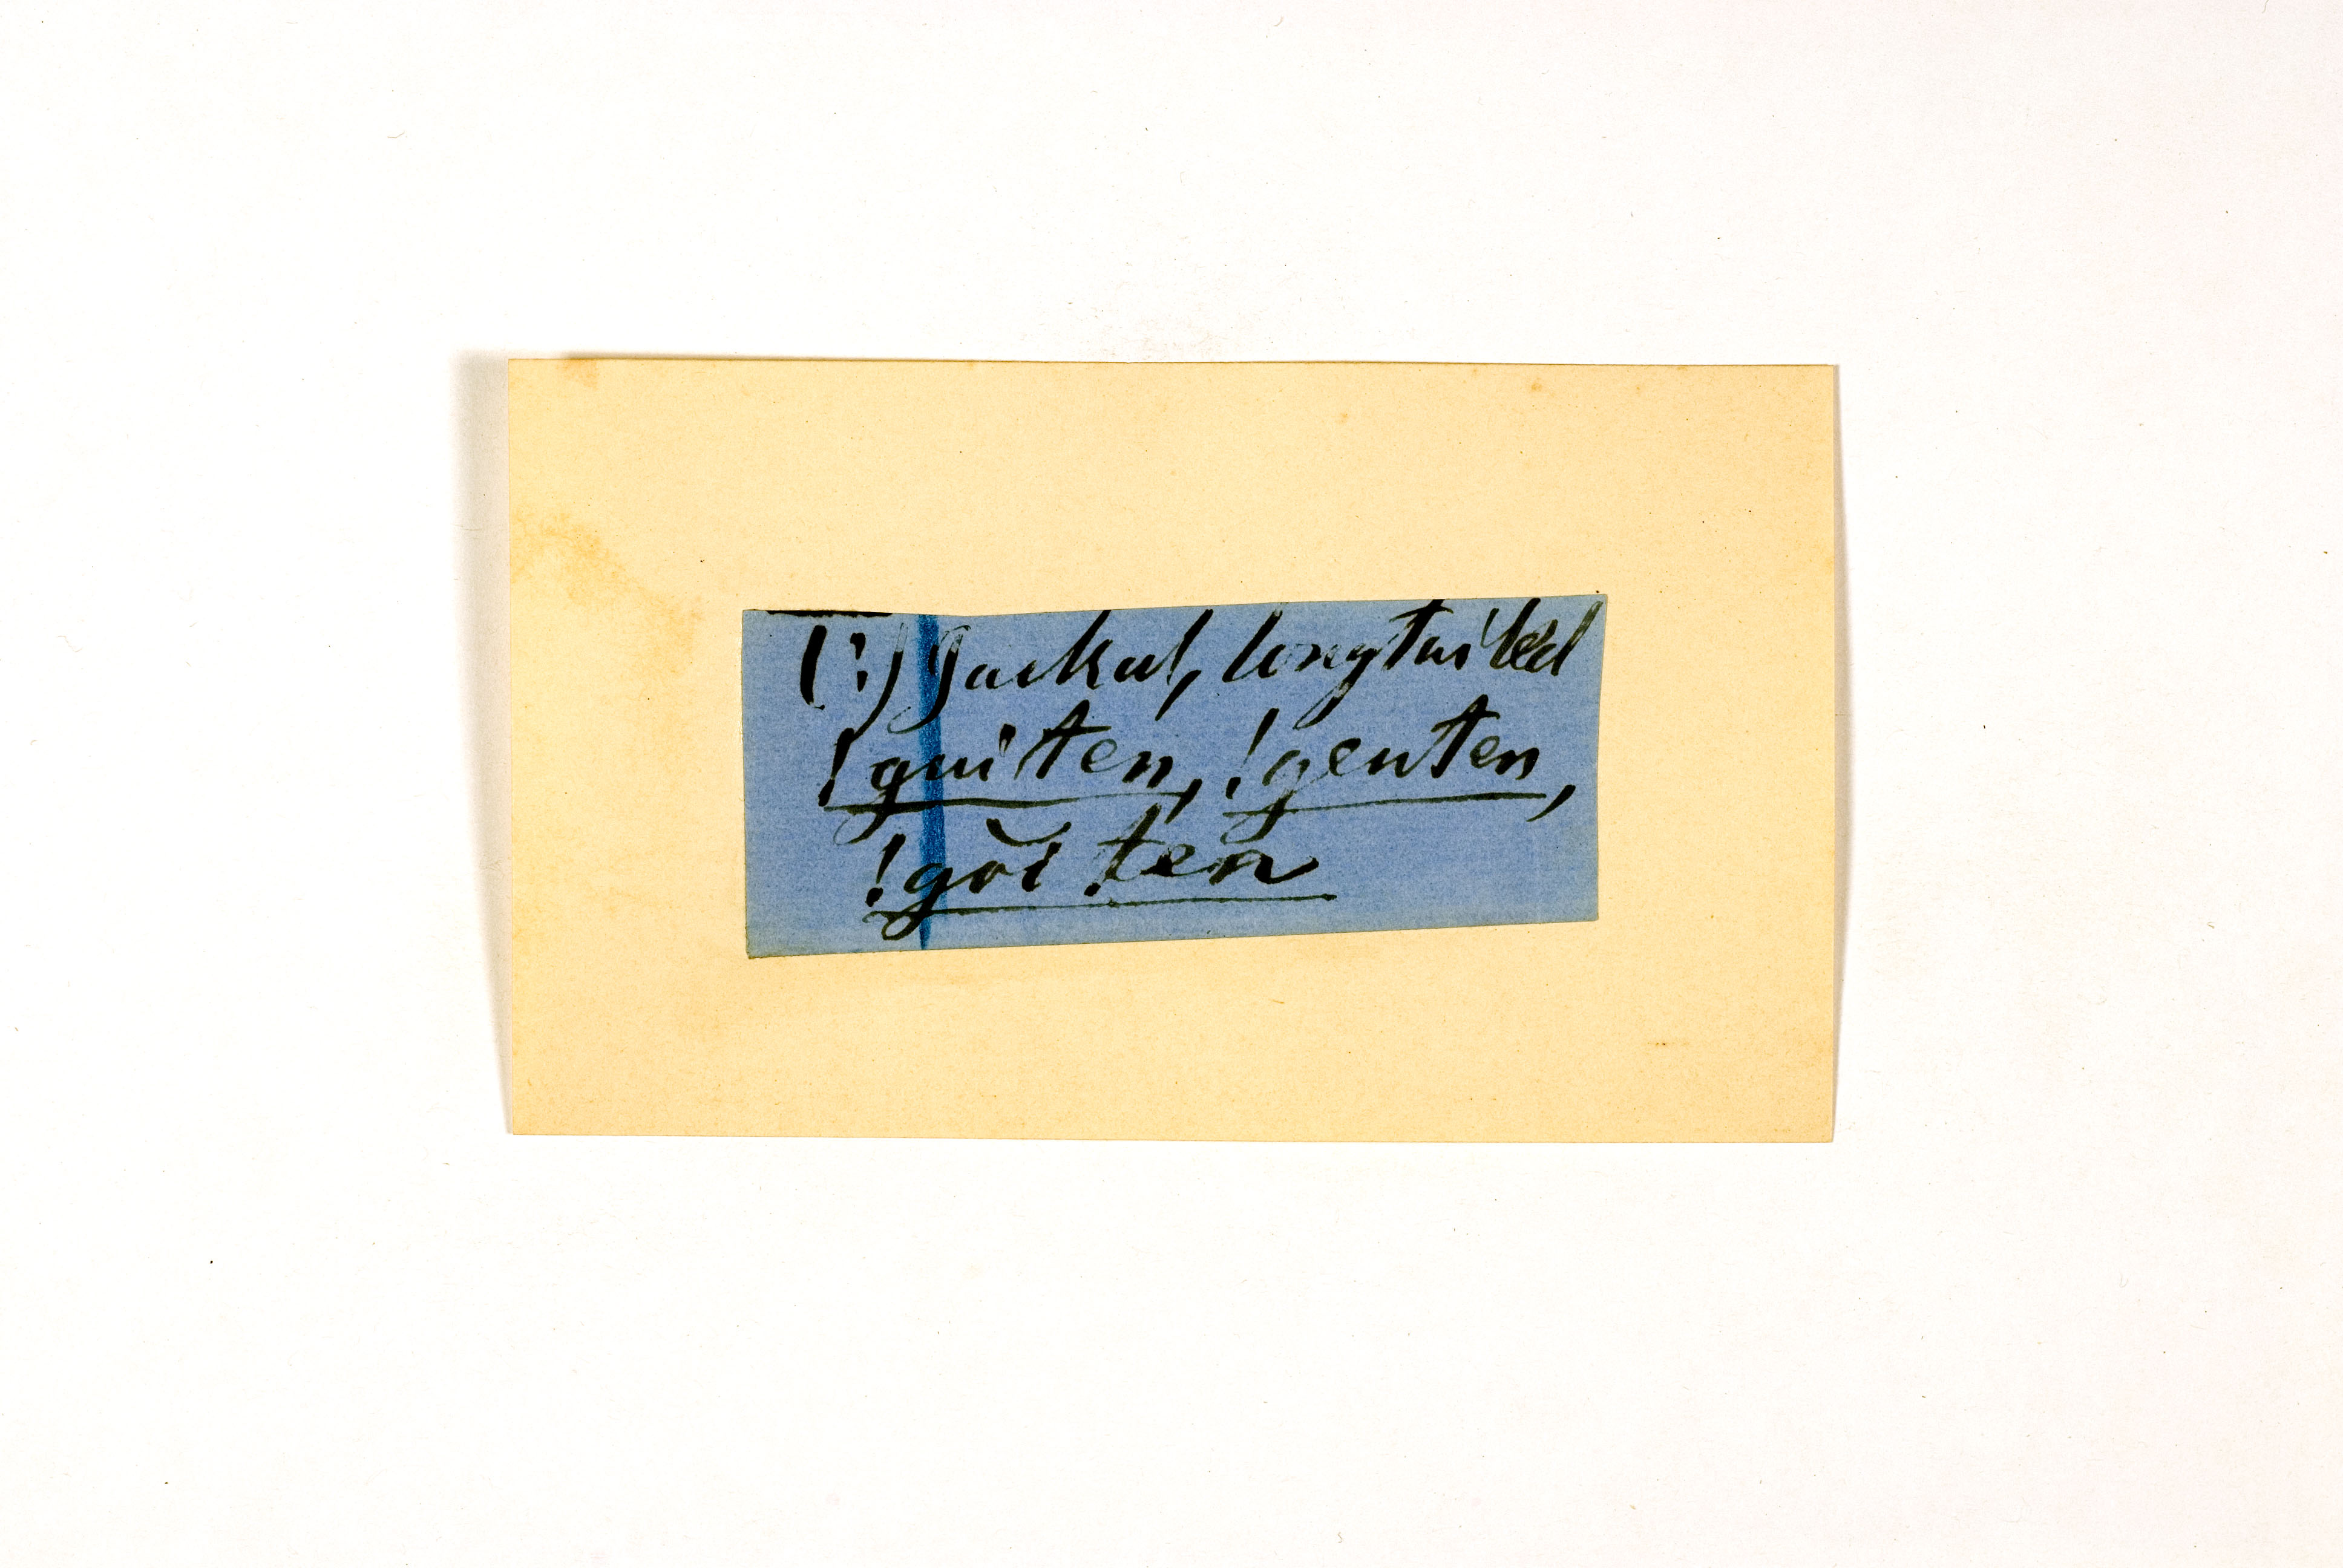 (?) Jackal, longtailed
!guiten, !genten,
!gŏiten